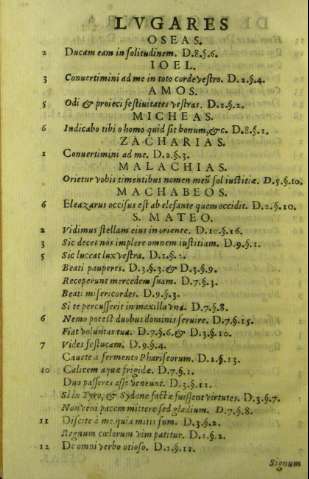 LVGARES
OSEAS.
2 Ducam eam in solitudinem. D.8.§.6.
IOEL.
3 Convertimini ad me in toto corde vestro. D.2.§.4.
AMOS.
5 Odi & proieci festivitates vestras. D.2.§.2.
MICHEAS.
6 Indicabo tibi o homo quid sit bonum, &c. D.8.§.1.
ZACHARIAS.
1 Convertimini ad me. D.2.§.3.
MALACHIAS.
Orietur vobis timentibus nomen meū sol iustitiæ. D.5.§.10.
MACHABEOS.
6 Eleazarus occisus est ab elefante quem occidit. D.2.§.10.
S. MATEO.
2 Vidimus stellam eius in oriente. D.10.§.16.
3 Sic decet nos implere omnem iustitiam. D.9.§.1.
5 Sic luceat lux vestra. D.1.§.2.
Beati pauperes. D.3.§.3.& D.3.§.9.
Receperunt mercedem suam. D.7.§.3.
Beati misericordes. D.9.§.3.
Si te percusserit in maxilla vna. D.7.§.8.
6 Nemo potest duobus dominis servire. D.7.§.15.
Fiat voluntas tua. D.7.§.6.& D.3.§.10.
7 Vides festucam. D.9.§.4.
Cavete a fermento Phariseorum. D.2.§.13.
10 Calicem aquæ frigidæ. D.7.§.1.
Duo passeres asse veneunt. D.3.§.11.
Si in Tyro, & Sydone factæ fuissent virtutes. D.3.§.7.
Non veni pacem mittere sed gladium. D.7.§.8.
11 Discite a me, quia mitis sum. D.3.§.2.
Regnum cœlorum vim patitur. D.1.§.2.
12 De omni verbo otioso. D.1.§.12.
Signum